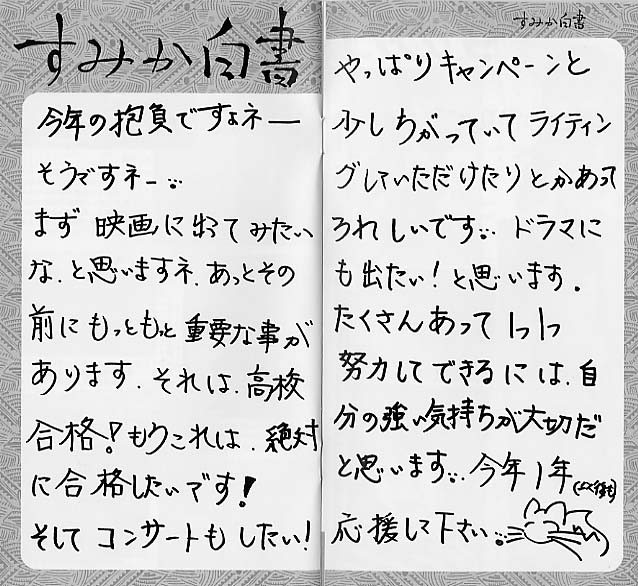 すみか白書
今年の抱負ですよネー
そうですネー…
まず 映画に出てみたい
な、と思いますネ、あっとその
前にもっともっと重要な事が
あります。それは、高校
合格!もうこれは、絶対
に合格したいです!
そして コンサートもしたい!
すみか白書
やっぱりキャンペーンと
少しちがっていてライティン
グしていただけたりとかあって
うれしいです… ドラマに
も出たい!と思います。
たくさんあって1つ1つ
努力してできるには、自
分の強い気持ちが大切だ
と思います… 今年1年
応援して下さい…